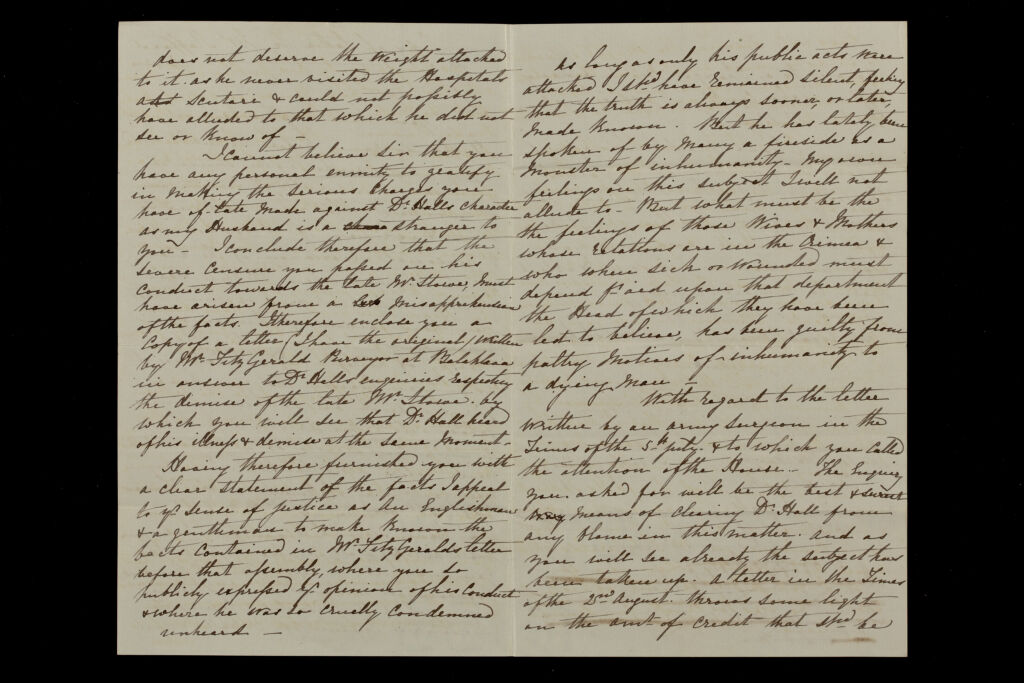 does not deserve the weight attached
to it as he never visited the Hospitals
at Scutari & could not possibly
have alluded to that which he did not
see or know of —
I cannot believe Sir that you
have any personal enmity to gratify
in making the serious charges you
have of late made against Dr. Halls character
as my Husband is a stranger to
you — I conclude therefore that the
severe censure you passed on his
conduct towards the late Mr. Stowe, must
have arisen from a misapprehension
of the facts. I therefore enclose you a
Copy of a letter (I have the original) written
by Mr. FitzGerald Purveyor at Balaklava
in answer to Dr. Halls enquiries respecting
the demise of the late Mr. Stowe. by
which you will see that Dr. Hall heard
of his illness & demise at the same moment.
Having therefore furnished you with
a clear statement of the facts I appeal
to yr. sense of justice as an Englishman
& a gentleman to make known the
facts contained in Mr. FitzGeralds letter
before that assembly, where you so
publicly expressed yr. opinion of his conduct
& where he was so cruelly condemned
unheard —
As long as only his public acts were
attacked I shd. have remained silent, feeling
that the truth is always sooner, or later,
made known. But he has lately been
spoken of by many a fireside as a
Monster of inhumanity — My own
feelings on this subject I will not
allude to — But what must be the
the feelings of those Wives & Mothers
whose relations are in the Crimea &
who when sick or wounded must
depend fr. aid upon that department
the Head of which they have been
led to believe, has been guilty from
paltry Motives of inhumanity to
a dying Man —
With regard to the letter
written by an army surgeon in the
Times of the 5th July. & to which you called
the attention of the House — The Enquiry
you asked for will be the best & surest
means of clearing Dr. Hall from
any blame in this matter. And as
you will see already the subject has
been taken up. A letter in the Times
of the 2nd August. throws some light
on the amt. of credit that shd. be